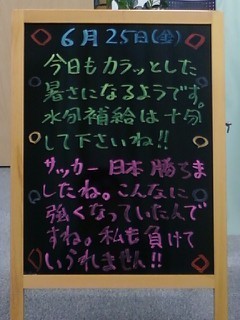 6月25日(金)
今日もカラッとした
暑さになるようです。
水分補給は十分
して下さいね!!
サッカー日本勝ちま
したね。こんなに
強くなっていたんで
すね。私も負けて
いられません!!